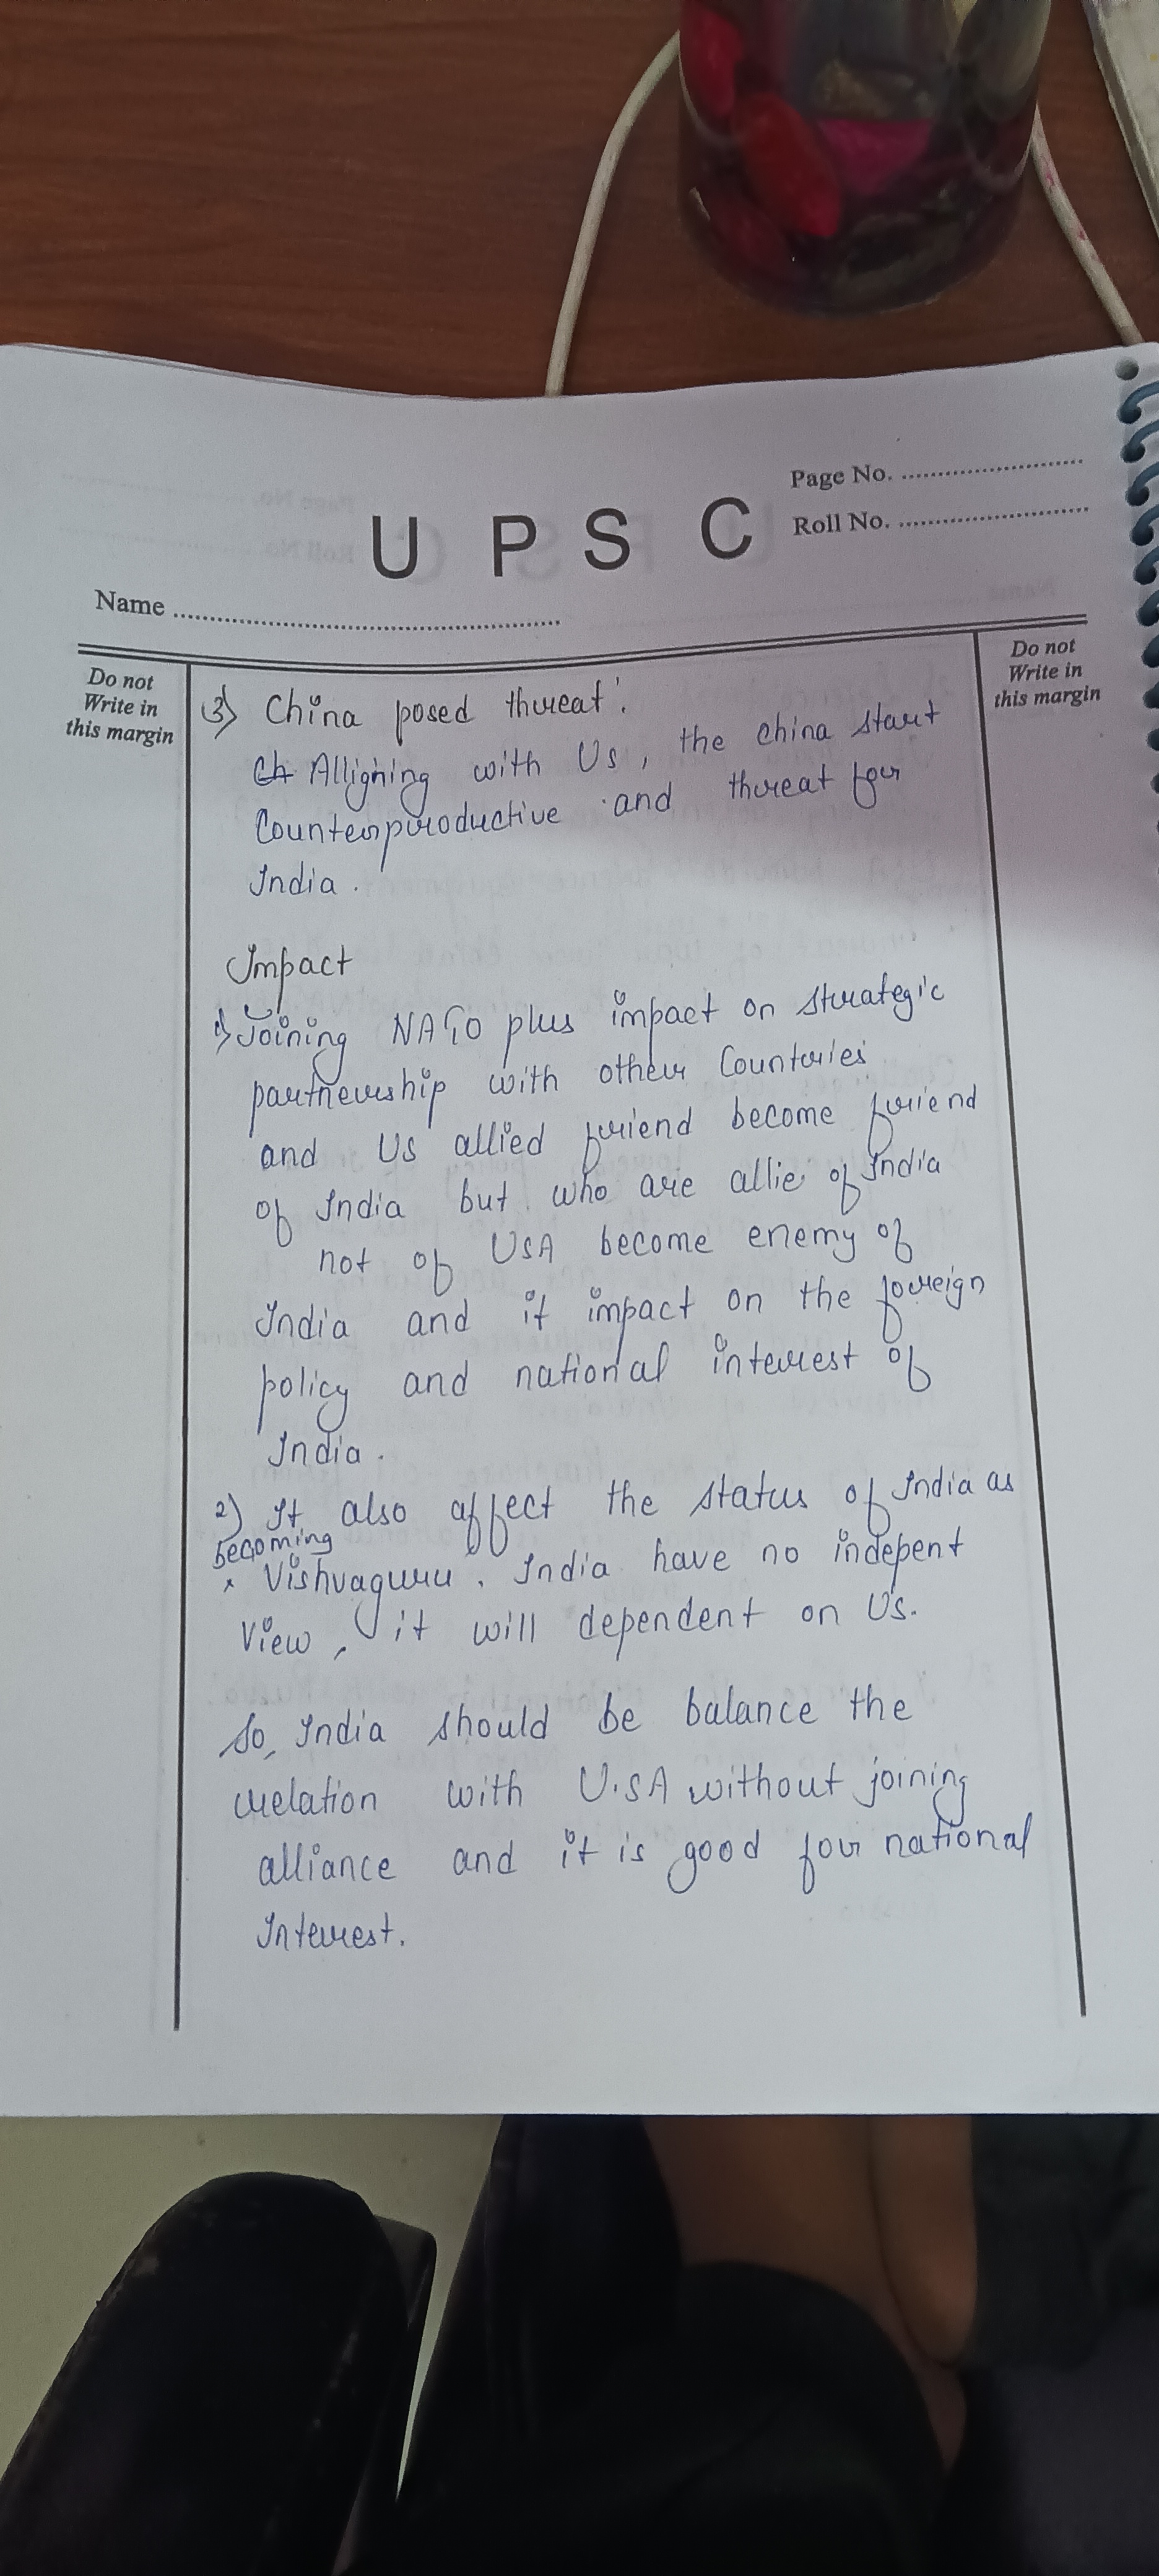 Page No.
Roll No.
U P S C
Name
Do not
Write in
this margin
Do not
Write in
this margin
3) China posed threat:
Alligning with Us, the china start
Counterproductive and threat for
India.
Impact
1) Joining NATO plus impact on strategic
partnership with other Countries
and US allied friend become friend
of India but who are allie of India
not of USA become enemy of
India and it impact on the foreign
policy and national interest of
India.
2) It also affect the status of India as
becoming
x Vishvaguru. India have no indepent
view, it will dependent on Us.
So, India should be balance the
relation with U.S.A without joining
alliance and it is good for national
Interest.